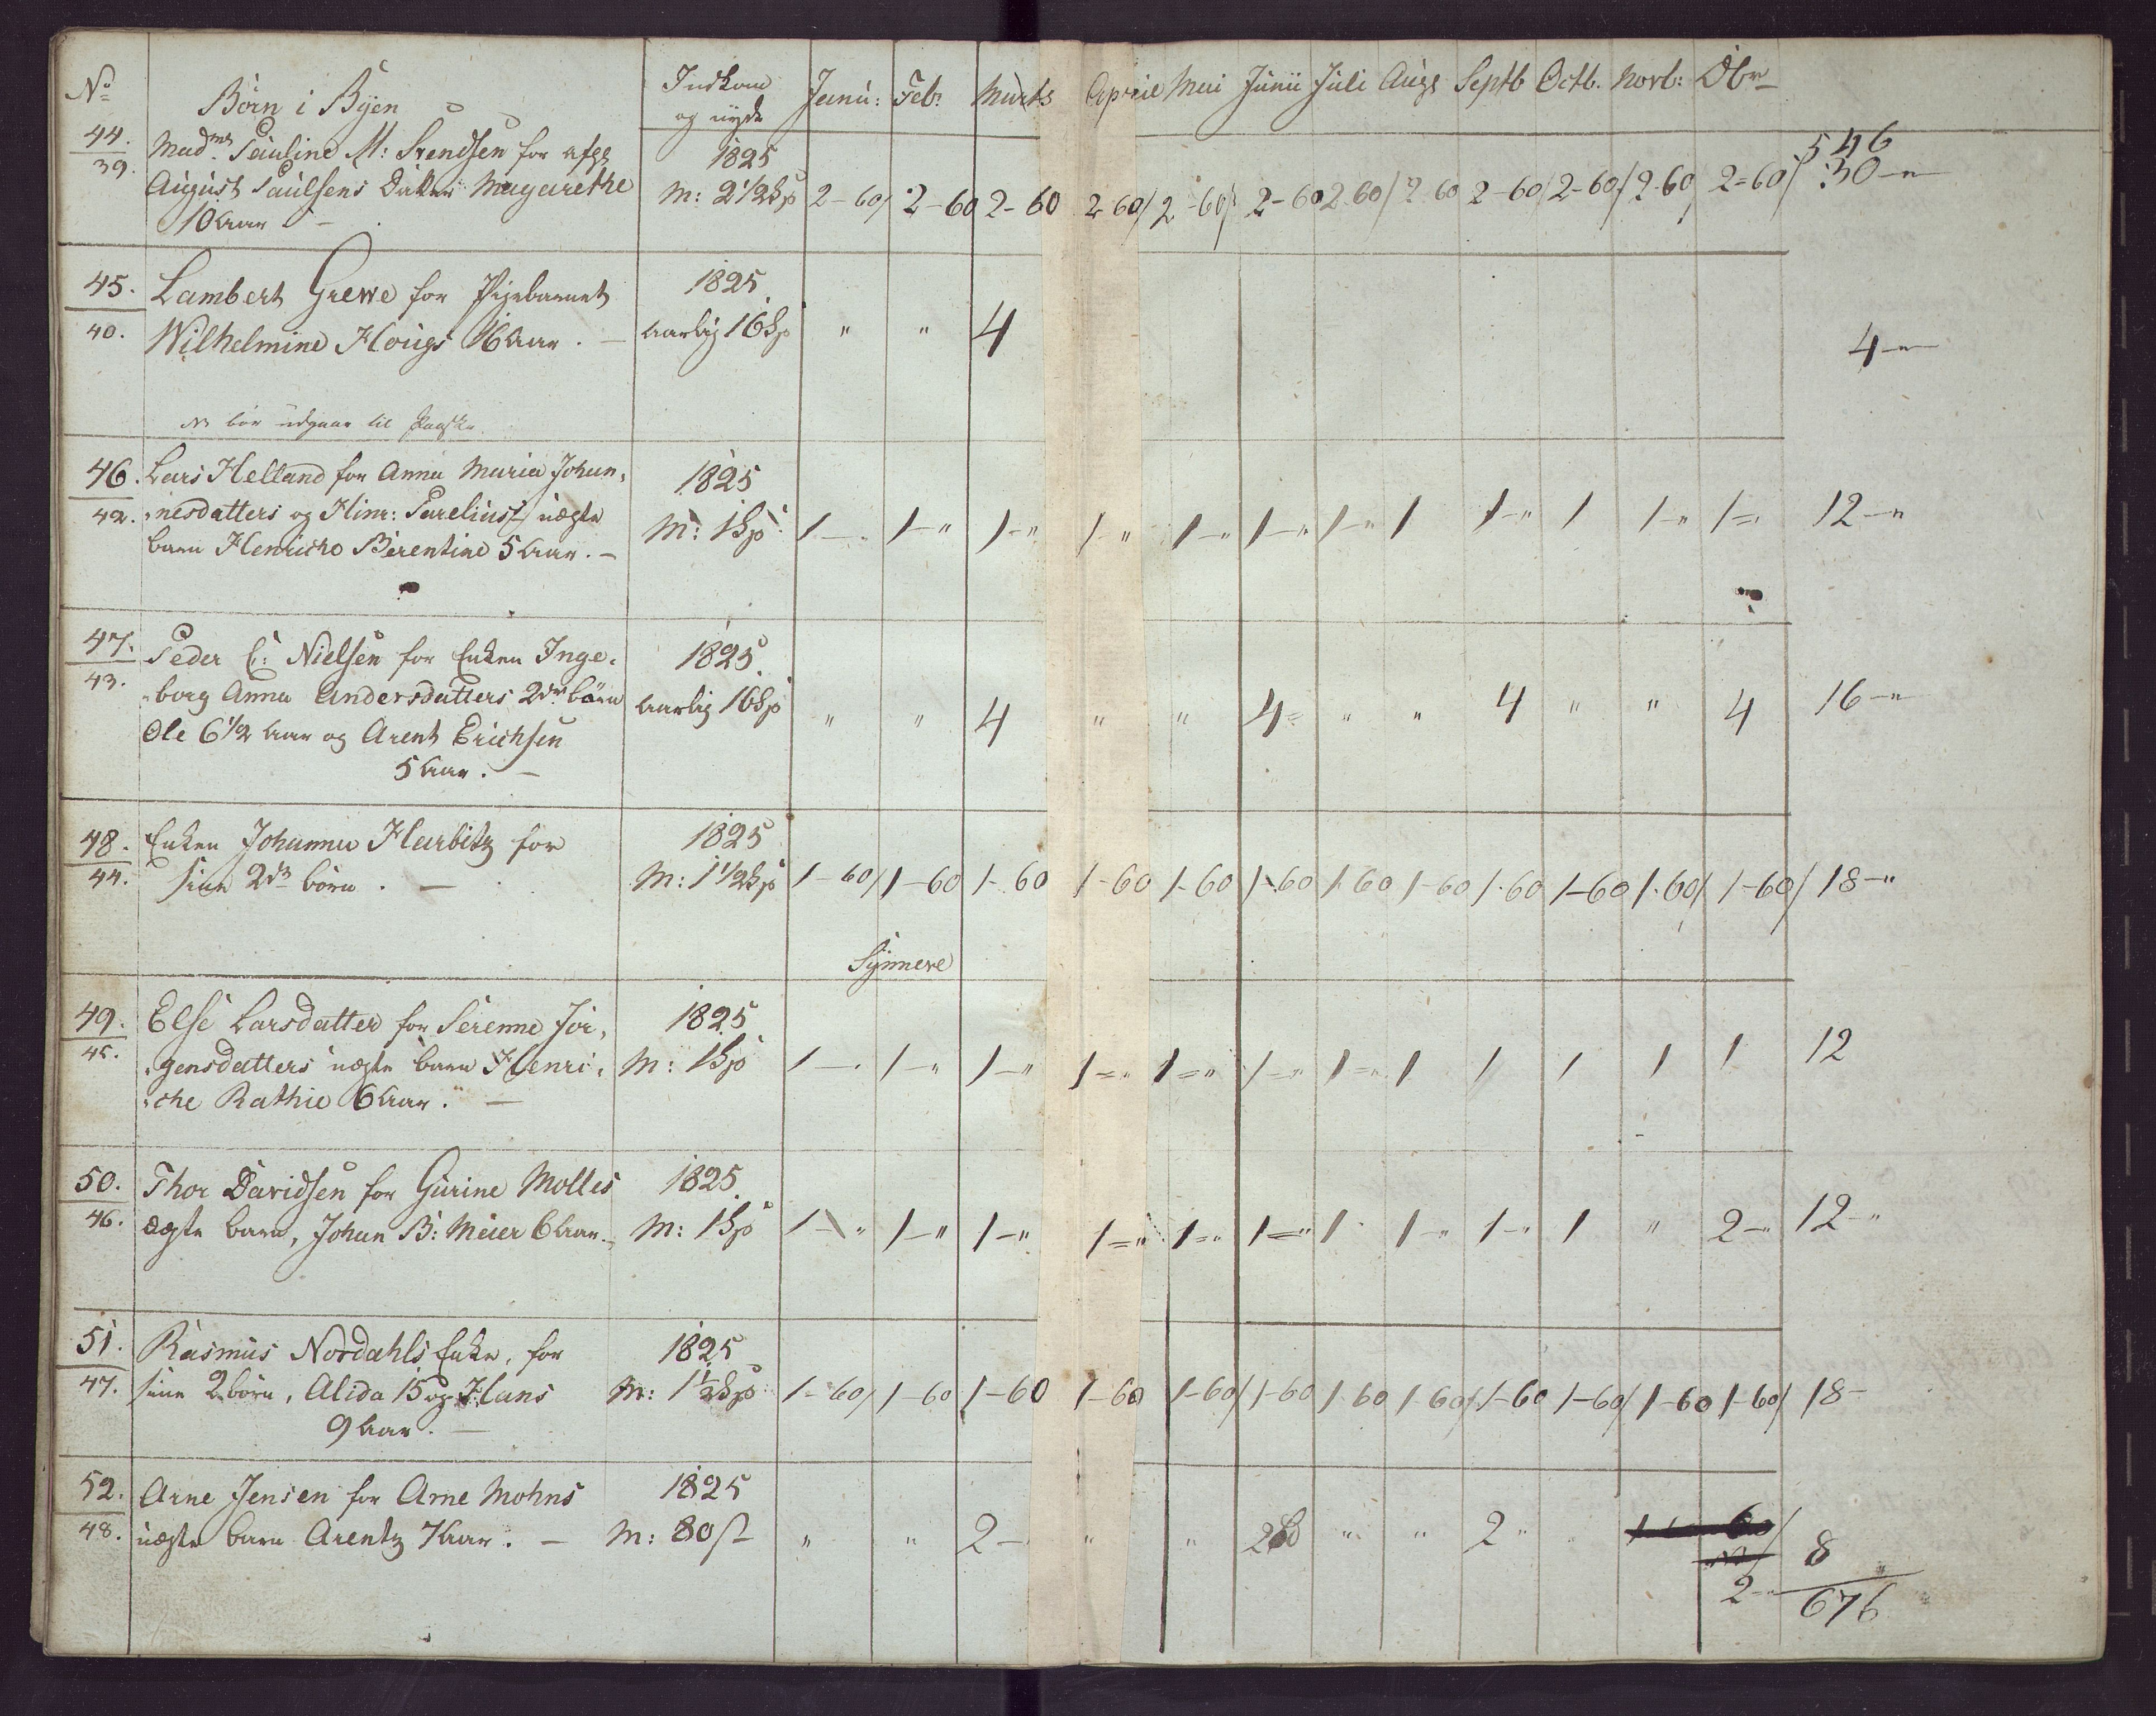 No Børn i Byen Indkom og nyde Janu: Feb: Marts April Mai Junii Juli Aug Septb Octb. Novb: Dbr
546
44. Madme Pauline M: Svendsen for afg. 1825
39. August Paulsens Datter Magarethe M: 2 1/2 Sp 2-60/ 2-60 2-60 2-60/ 2-60/ 2-60 2-60/ 2-60 2-60/ 2-60/ 2-60/ 2-60/ 30-"
10 Aar
45. Lambert Grewe for Pigebarnet 1825
40. Wilhelmine Hougs 16 Aar. - Aarlig 16 Sp " " 4 4-"
NB bør udgaae til Paaske
46. Lars Helland for Anna Maria Johan, 1825
42. nesdatters og Hinr: Parelius's uægte M: 1 Sp 1- 1-" 1-" 1-" 1-" 1-" 1-" 1 1-" 1 1-" 1-" 12-"
barn Henriche Berentine 5 Aar. -
47. Peder C: Nielsen for Enken Inge, 1825
43. borg Anna Andersdatters 2de børn Aarlig 16 Sp " " 4 " " 4 " " 4 " " 4 16-"
Ole 6 1/2 Aar og Arent Erichsen
5 Aar. -
48. Enken Johanna Harbitz for 1825
44. sine 2de børn. - M: 1 1/2 Sp 1-60/ 1-60 1-60 1-60 1-60 1-60 1-60 1-60 1-60 1-60 1-60/ 1-60/ 18-"
Synneve
49. Else Larsdatter for Serenne Jør, 1825
45. gensdatters uægte barn Henri, M: 1 Sp 1-. 1-" 1-" 1-" 1-" 1-" 1-" 1 1 1 1 1 12
che Kathie 6 Aar. -
50. Thor Davidsen for Gurine Molles 1825
46. ægte barn, Johan B: Meier 6 Aar. - M: 1 Sp 1-" 1-" 1-" 1-" 1-" 1-" 1 1-" 1-" 1 " 2-" 12-"
51. Rasmus Nordahls Enke, for 1825
47. sine 2 børn, Alida 15 og Hans M: 1 1/2 Sp 1-60/ 1-60 1-60 1-60 1-60/ 1-60 1-60 1-60/ 1-60 1-60/ 1-60 1-60/ 18-
9 Aar. -
52. Arne Jensen for Arne Mohns 1825
48. uægte barn Arentz 7 Aar. - M: 80 s " " 2- " " 2 " " 2 " 8
2-" 676